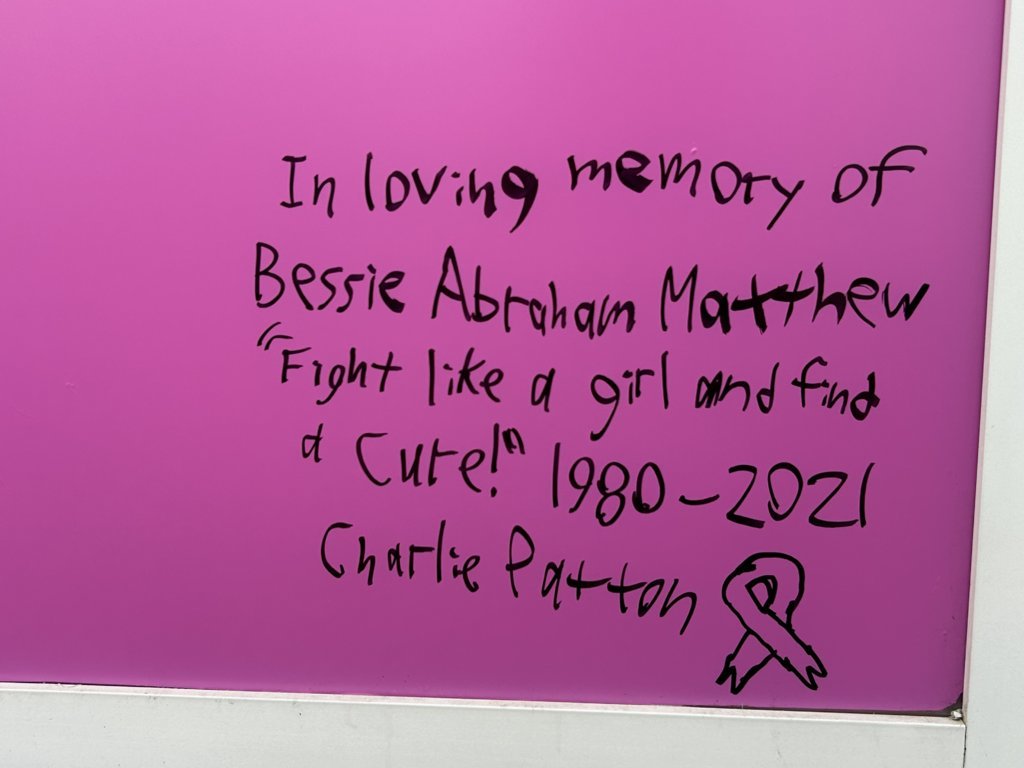 In loving memory of
Bessie Abraham Matthew
"Fight like a girl and find
a Cure!" 1980-2021
Charlie Patton